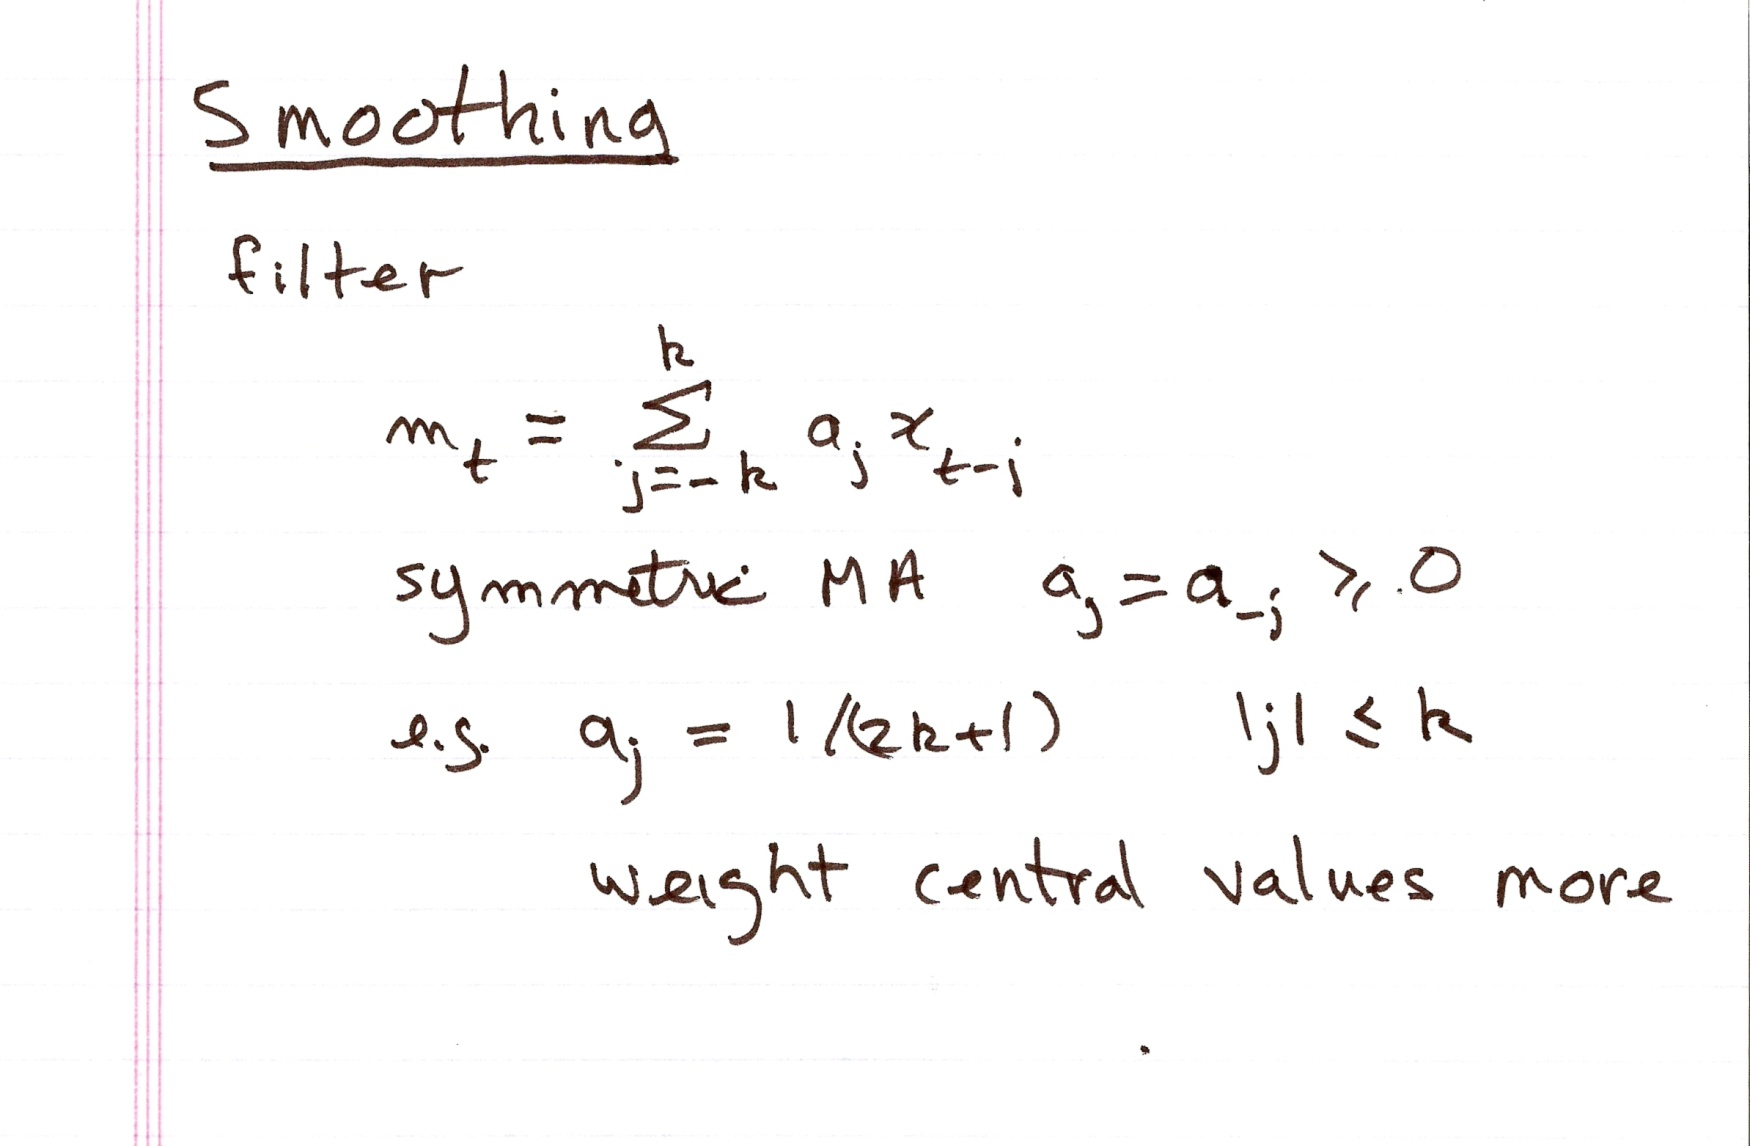 Smoothing
filter
m_t = Σ_{j=-k}^{k} a_j x_{t-j}
symmetric MA a_j = a_{-j} ≥ 0
e.g. a_j = 1/(2k+1) |j| ≤ k
weight central values more